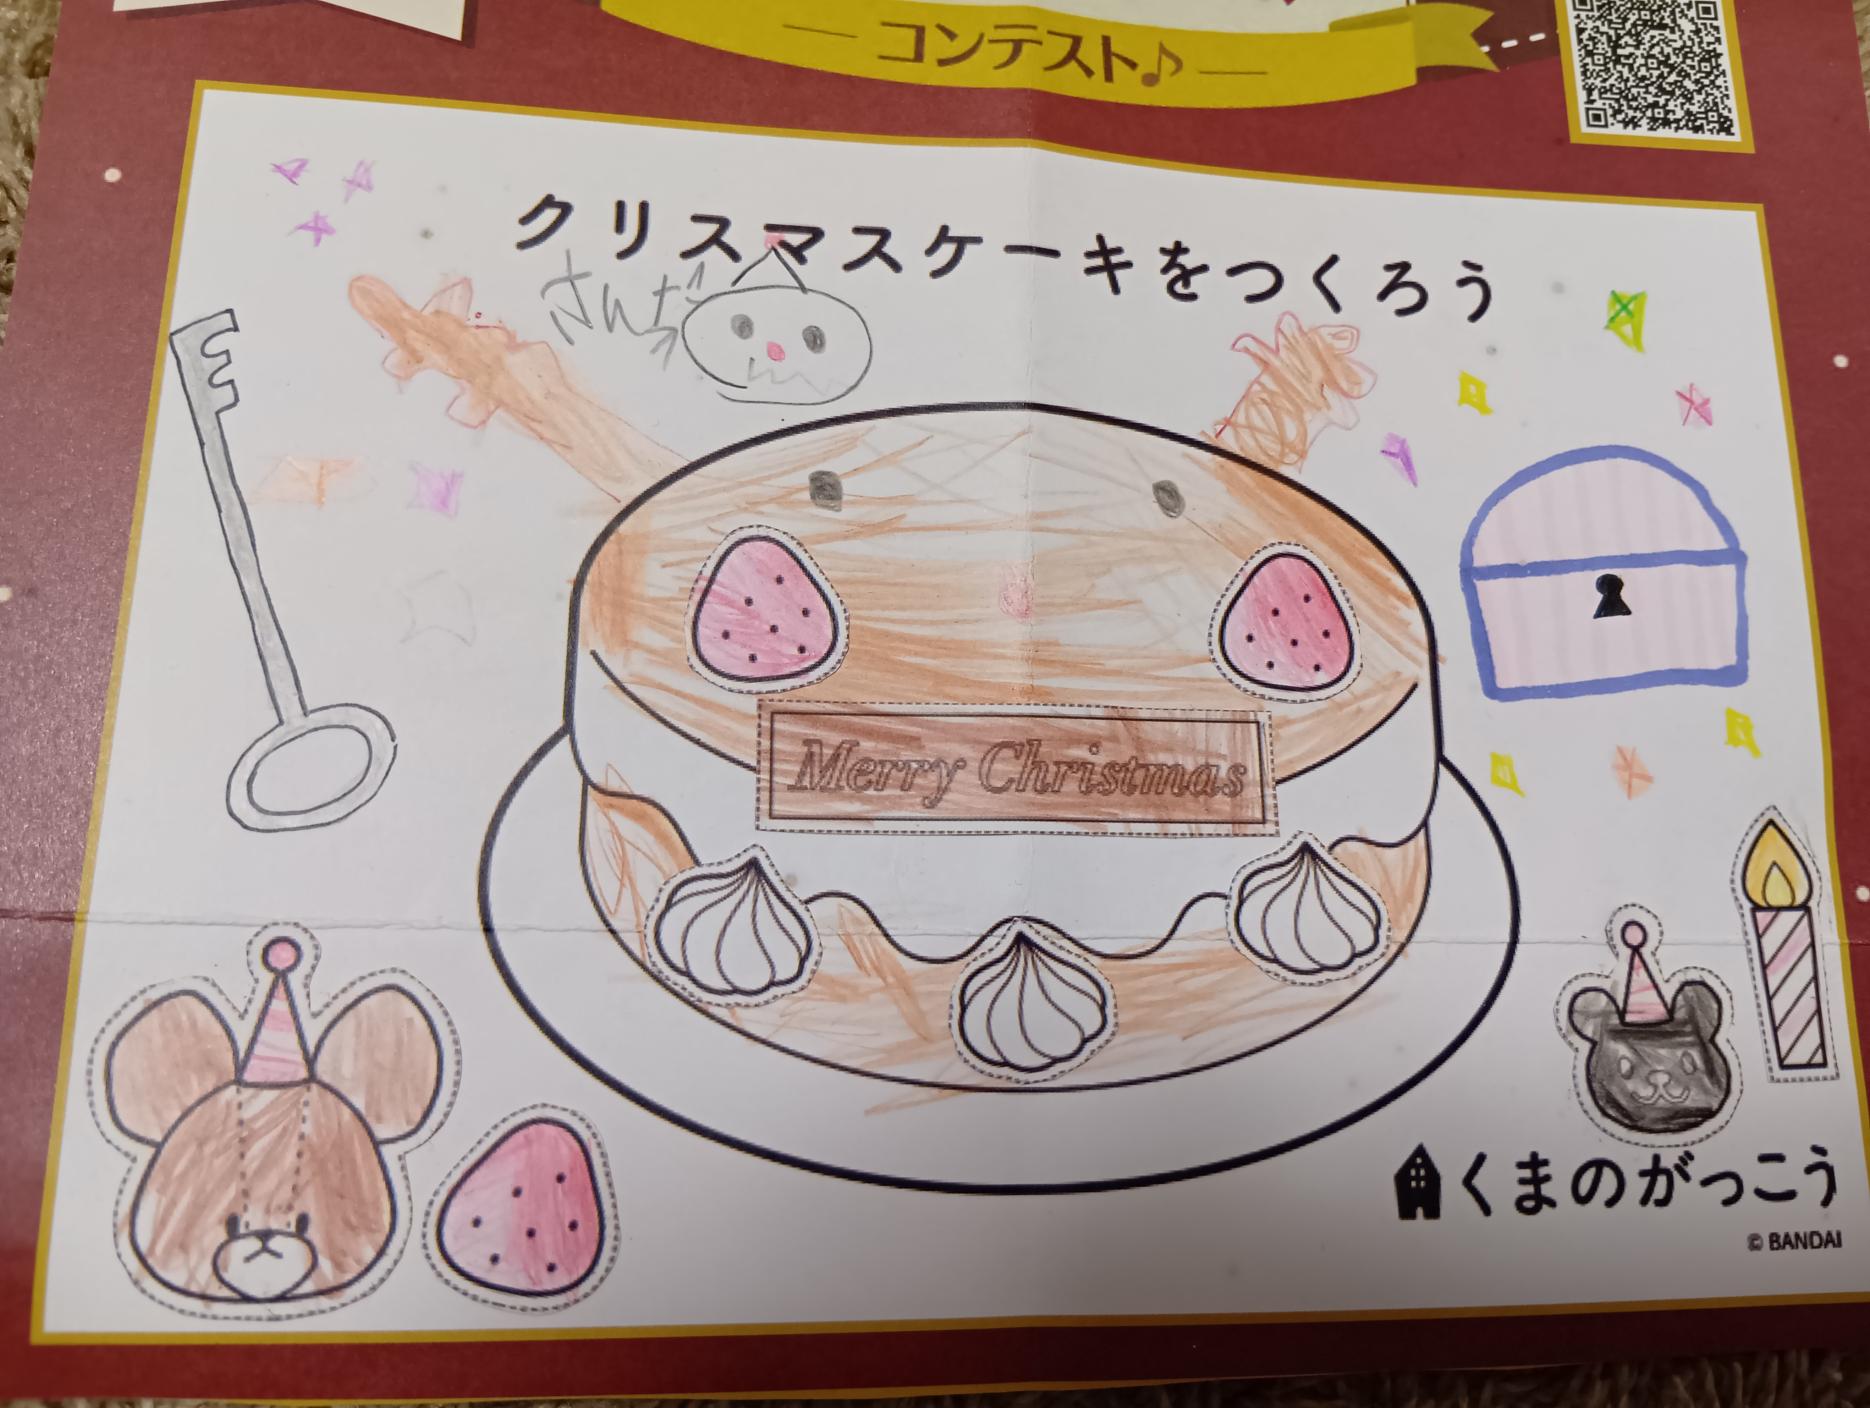 コンテスト♪
クリスマスケーキをつくろう
さんた
Merry Christmas
くまのがっこう
© BANDAI